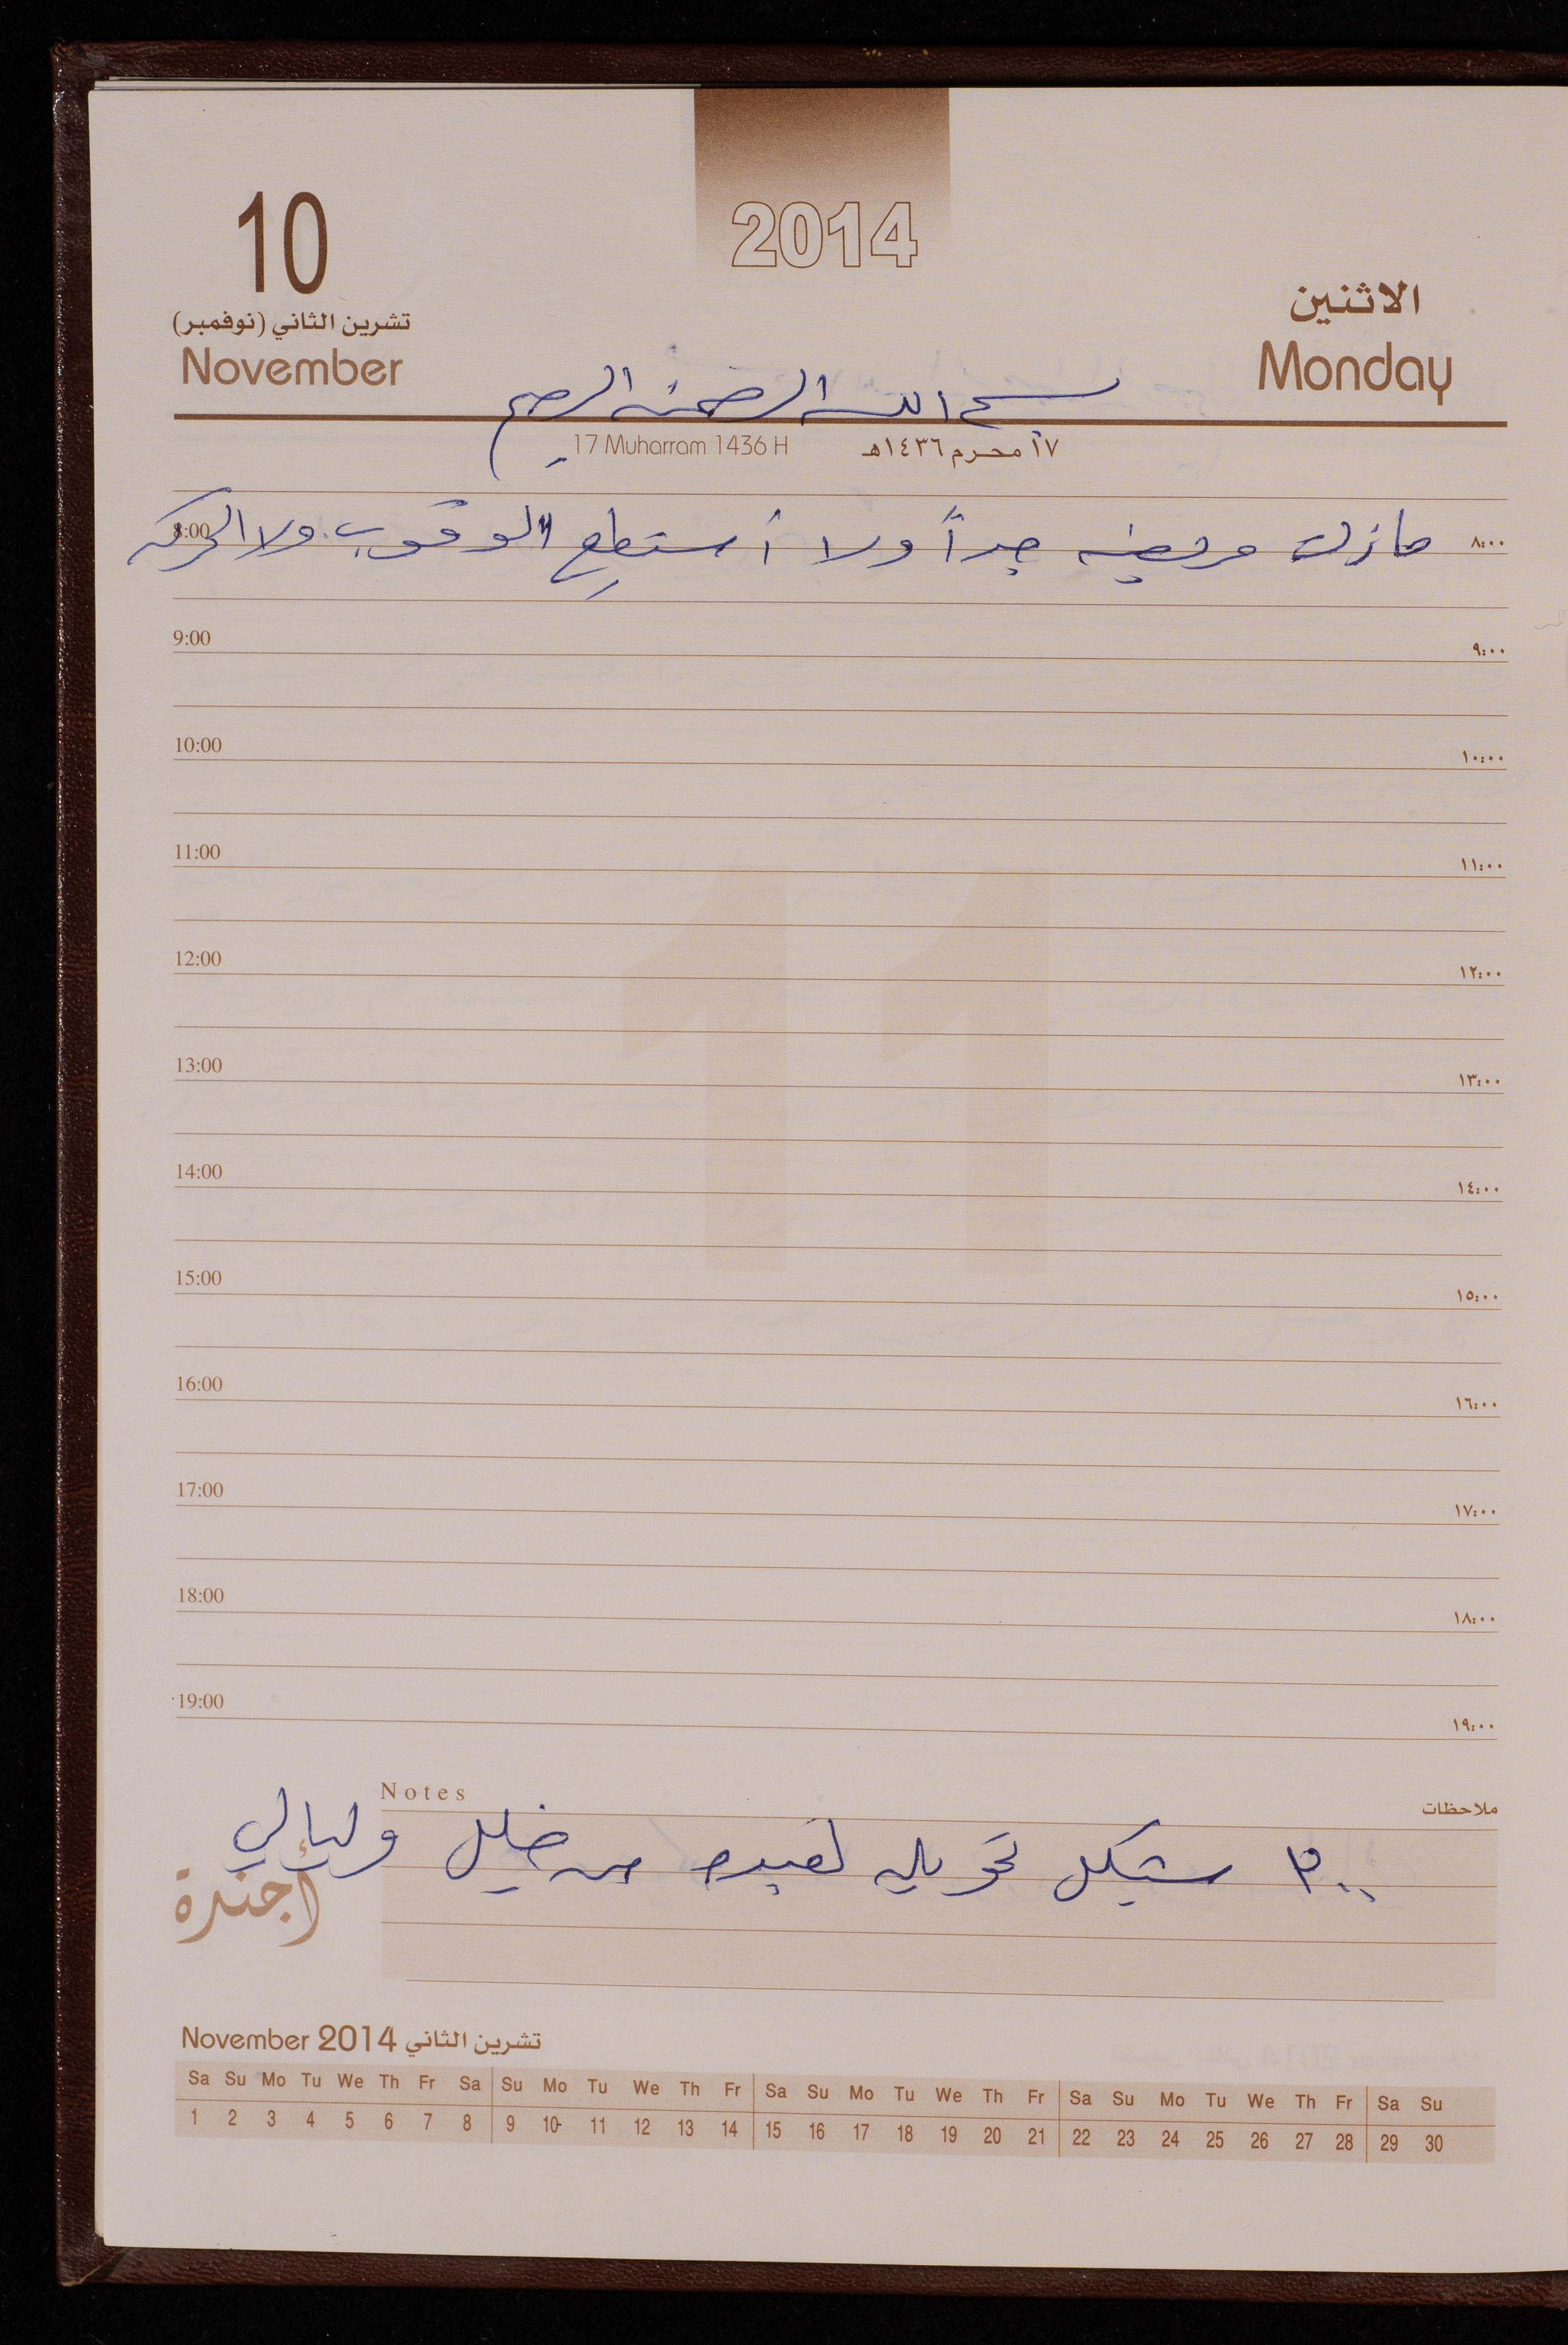 2014
10
تشرين الثاني (نوفمبر)
November
الاثنين
Monday
بسم الله الرحمن الرحيم
17 Muharram 1436 H
١٧ محرم ١٤٣٦هـ
8:00 مازلت مريضه جداً ولا أستطيع الوقوف ولا الحركه ٨:٠٠
9:00 ٩:٠٠
10:00 ١٠:٠٠
11:00 ١١:٠٠
11
12:00 ١٢:٠٠
13:00 ١٣:٠٠
14:00 ١٤:٠٠
15:00 ١٥:٠٠
16:00 ١٦:٠٠
17:00 ١٧:٠٠
18:00 ١٨:٠٠
19:00 ١٩:٠٠
Notes ملاحظات
٣٠٠ شيكل تحويله من خليل وليالي
أجندة
November 2014 تشرين الثاني
Sa Su Mo Tu We Th Fr Sa Su Mo Tu We Th Fr Sa Su Mo Tu We Th Fr Sa Su Mo Tu We Th Fr Sa Su
1 2 3 4 5 6 7 8 9 10 11 12 13 14 15 16 17 18 19 20 21 22 23 24 25 26 27 28 29 30